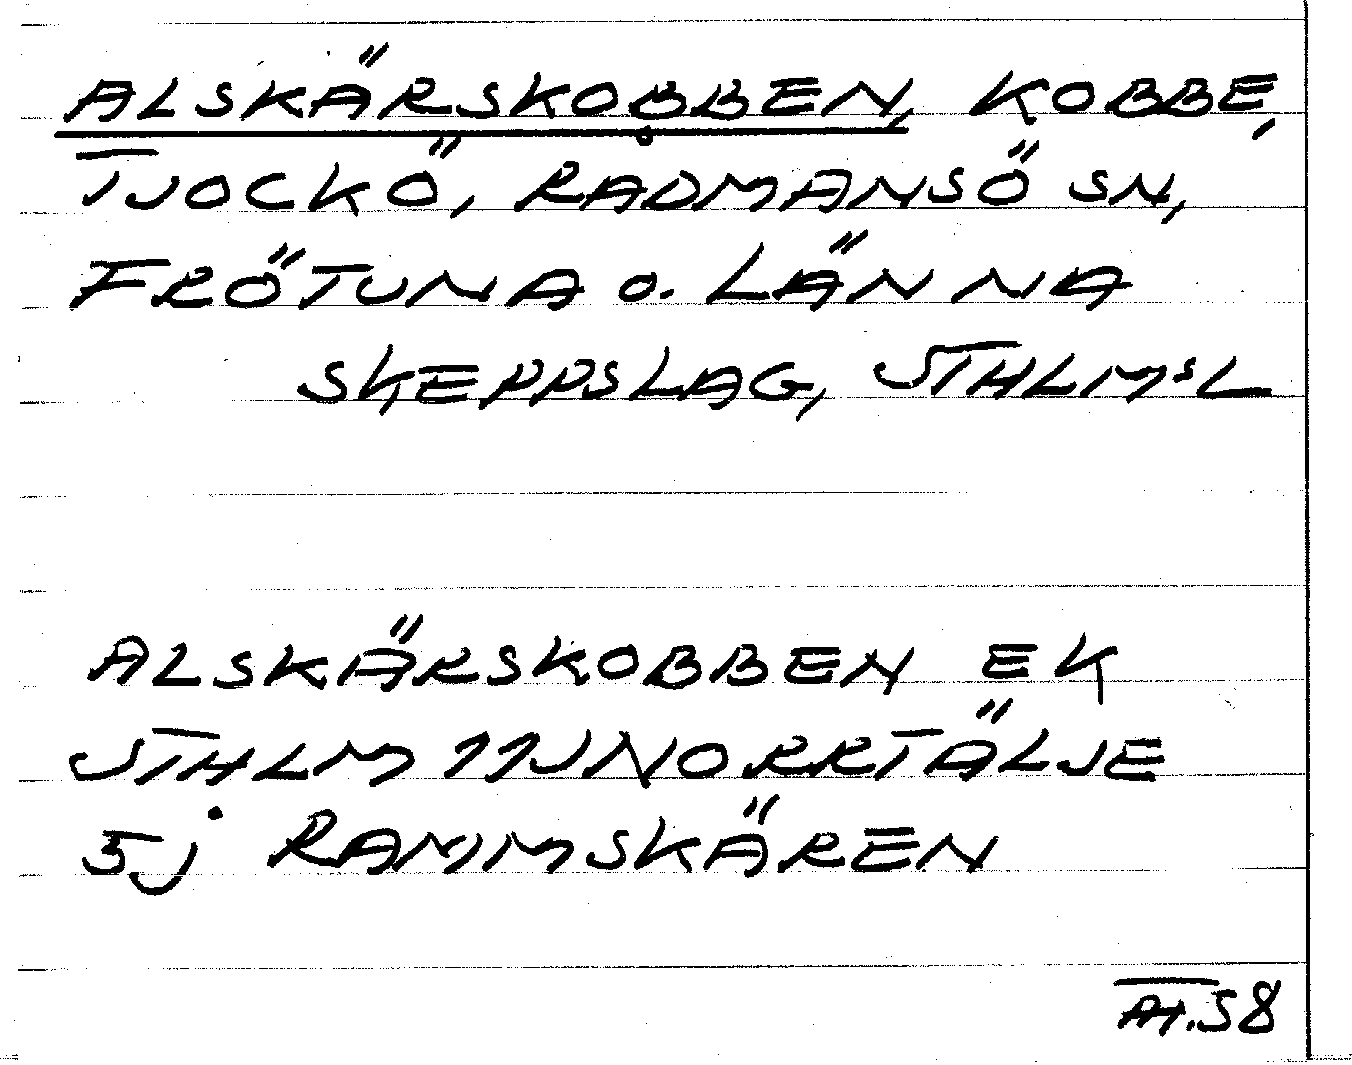 ALSKÄRSKOBBEN, KOBBE,
TJOCKÖ, RÅDMANSÖ SN,
FRÖTUNA o. LÄNNA
SKEPPSLAG, STHLMsL
ALSKÄRSKOBBEN EK
STHLM 11J NORRTÄLJE
5j RAMMSKÄREN